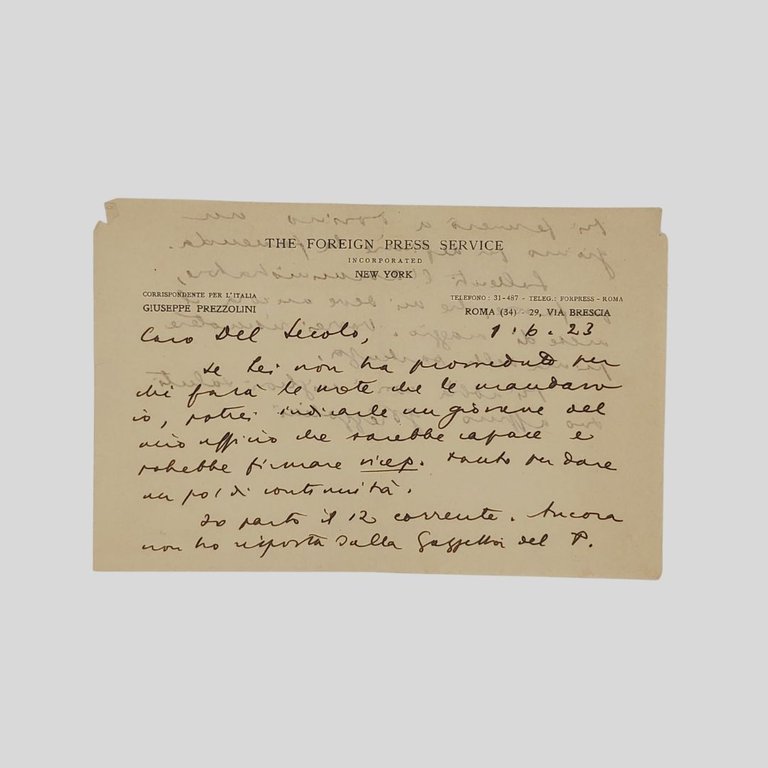 THE FOREIGN PRESS SERVICE
INCORPORATED
NEW YORK
CORRISPONDENTE PER L'ITALIA
GIUSEPPE PREZZOLINI
TELEFONO: 31-487 - TELEG.: FORPRESS - ROMA
ROMA (34) - 29, VIA BRESCIA
Caro Del Secolo, 1.6.23
se Lei non ha provveduto per
chi farà le note che le mandavo
io, potrei indicarle un giovane del
mio ufficio che sarebbe capace e
potrebbe firmare vicep. tanto per dare
un po' di continuità.
Io parto il 12 corrente. Ancora
non ho risposta dalla Gazzetta del P.